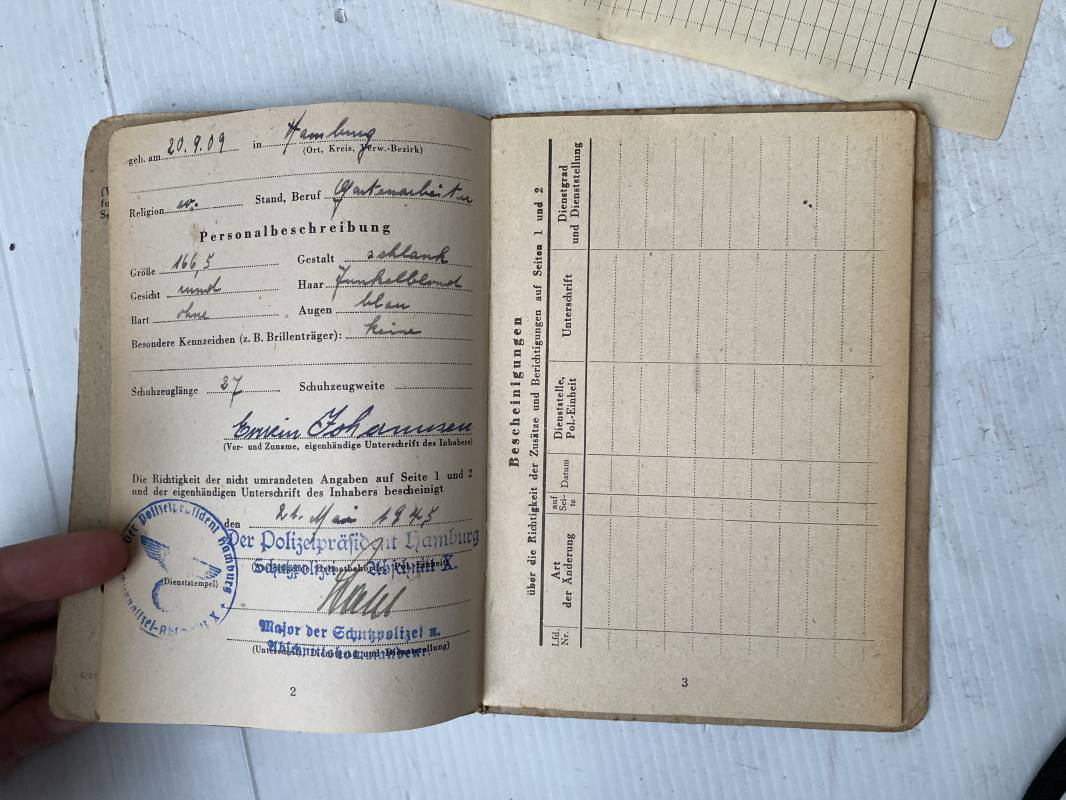 geb. am 20.9.09 in Hamburg
(Ort, Kreis, Verw.-Bezirk)
Religion ev. Stand, Beruf Gartenarbeiter
Personalbeschreibung
Größe 166,5 Gestalt schlank
Gesicht rund Haar dunkelblond
Bart ohne Augen blau
Besondere Kennzeichen (z. B. Brillenträger): keine
Schuhzeuglänge 27 Schuhzeugweite
Erwin Johannsen
(Vor- und Zuname, eigenhändige Unterschrift des Inhabers)
Die Richtigkeit der nicht umrandeten Angaben auf Seite 1 und 2
und der eigenhändigen Unterschrift des Inhabers bescheinigt
den 21. Mai 1945
Der Polizeipräsident Hamburg
Schutzpolizei Abschnitt X.
Major der Schutzpolizei u.
Abschnittskommandeur.
(Dienststempel)
Der Polizeipräsident Hamburg
2
Bescheinigungen
über die Richtigkeit der Zusätze und Berichtigungen auf Seiten 1 und 2
Lfd. Nr.
Art der Änderung
auf Sei- te
Datum
Dienststelle, Pol.-Einheit
Unterschrift
Dienstgrad und Dienststellung
3